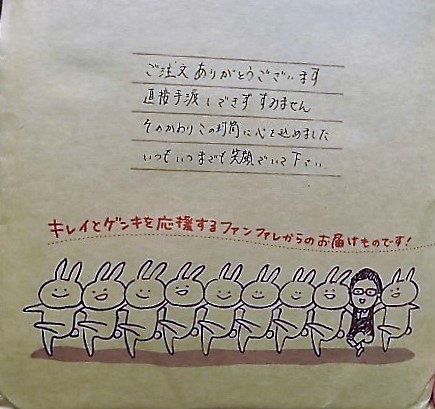 ご注文ありがとうございます
直接手渡しできずすみません
そのかわりこの封筒に心を込めました
いつもいつまでも笑顔でいて下さい
キレイとゲンキを応援するファンファレからのお届けものです!